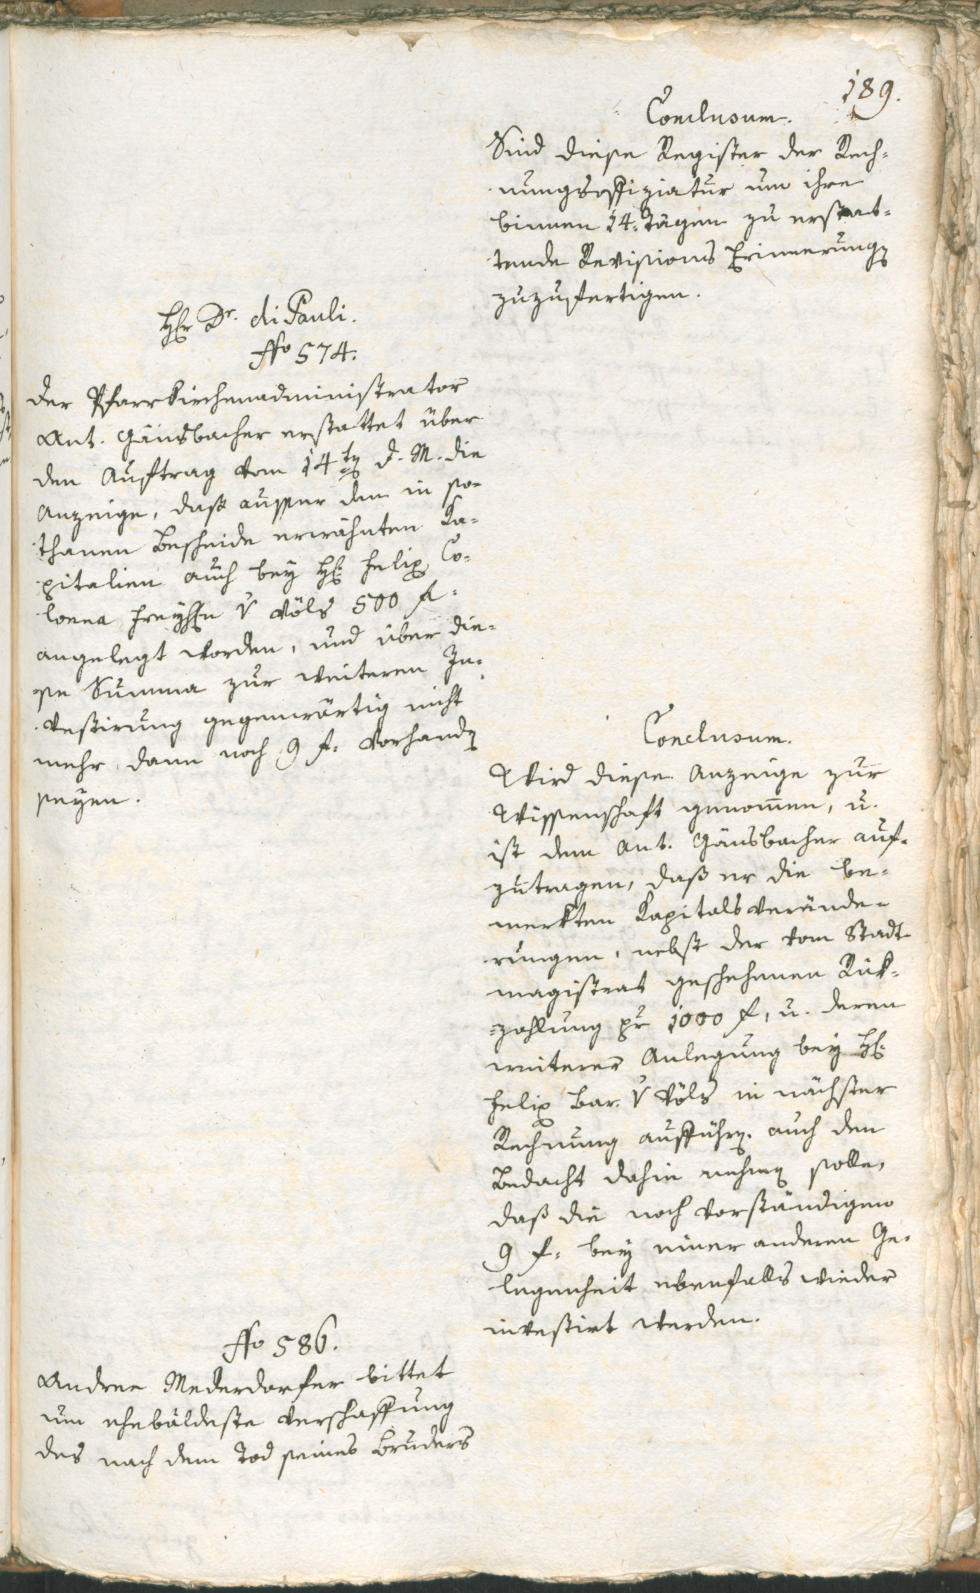 189.
Conclusum.
Sind diese Register der Rech=
nungsoffiziatur um ihre
binnen 14. Tägen zu erstat=
tende Revisions Erinnerung
zuzufertigen.
H: Dr. di Pauli.
No 574.
Der Pfarrkirchenadministrator
Ant. Gänsbacher erstattet über
den Auftrag vom 14ten d. M. die
Anzeige, daß ausser dem in so=
thanen Bescheide erwähnten Ka=
pitalien auch bey H: Felix Co=
lonna Freyhn v Völs 500 f.
angelegt worden, und über die=
se Summa zur weiteren In=
vestirung gegenwärtig nicht
mehr dann noch 9 f. vorhanden
seyen.
Conclusum.
Wird diese Anzeige zur
Wissenschaft genom̅en, u.
ist dem Ant. Gänsbacher auf=
zutragen, daß er die be=
merkten Kapitalsverände=
rungen, nebst der vom Stadt=
magistrat geschehenen Rük=
zahlung pr 1000 f, u. deren
weiterer Anlegung bey H:
Felix Bar. v Völs in nächster
Rechnung aufführen. auch den
Bedacht dahin nehmen solle,
daß die noch vorständigen
9 f. bey einer anderen Ge=
legenheit ebenfalls wieder
investirt werden.
No 586.
Andree Mederdorfer bittet
um ehebäldeste Verschaffung
des nach dem Tod seines Bruders